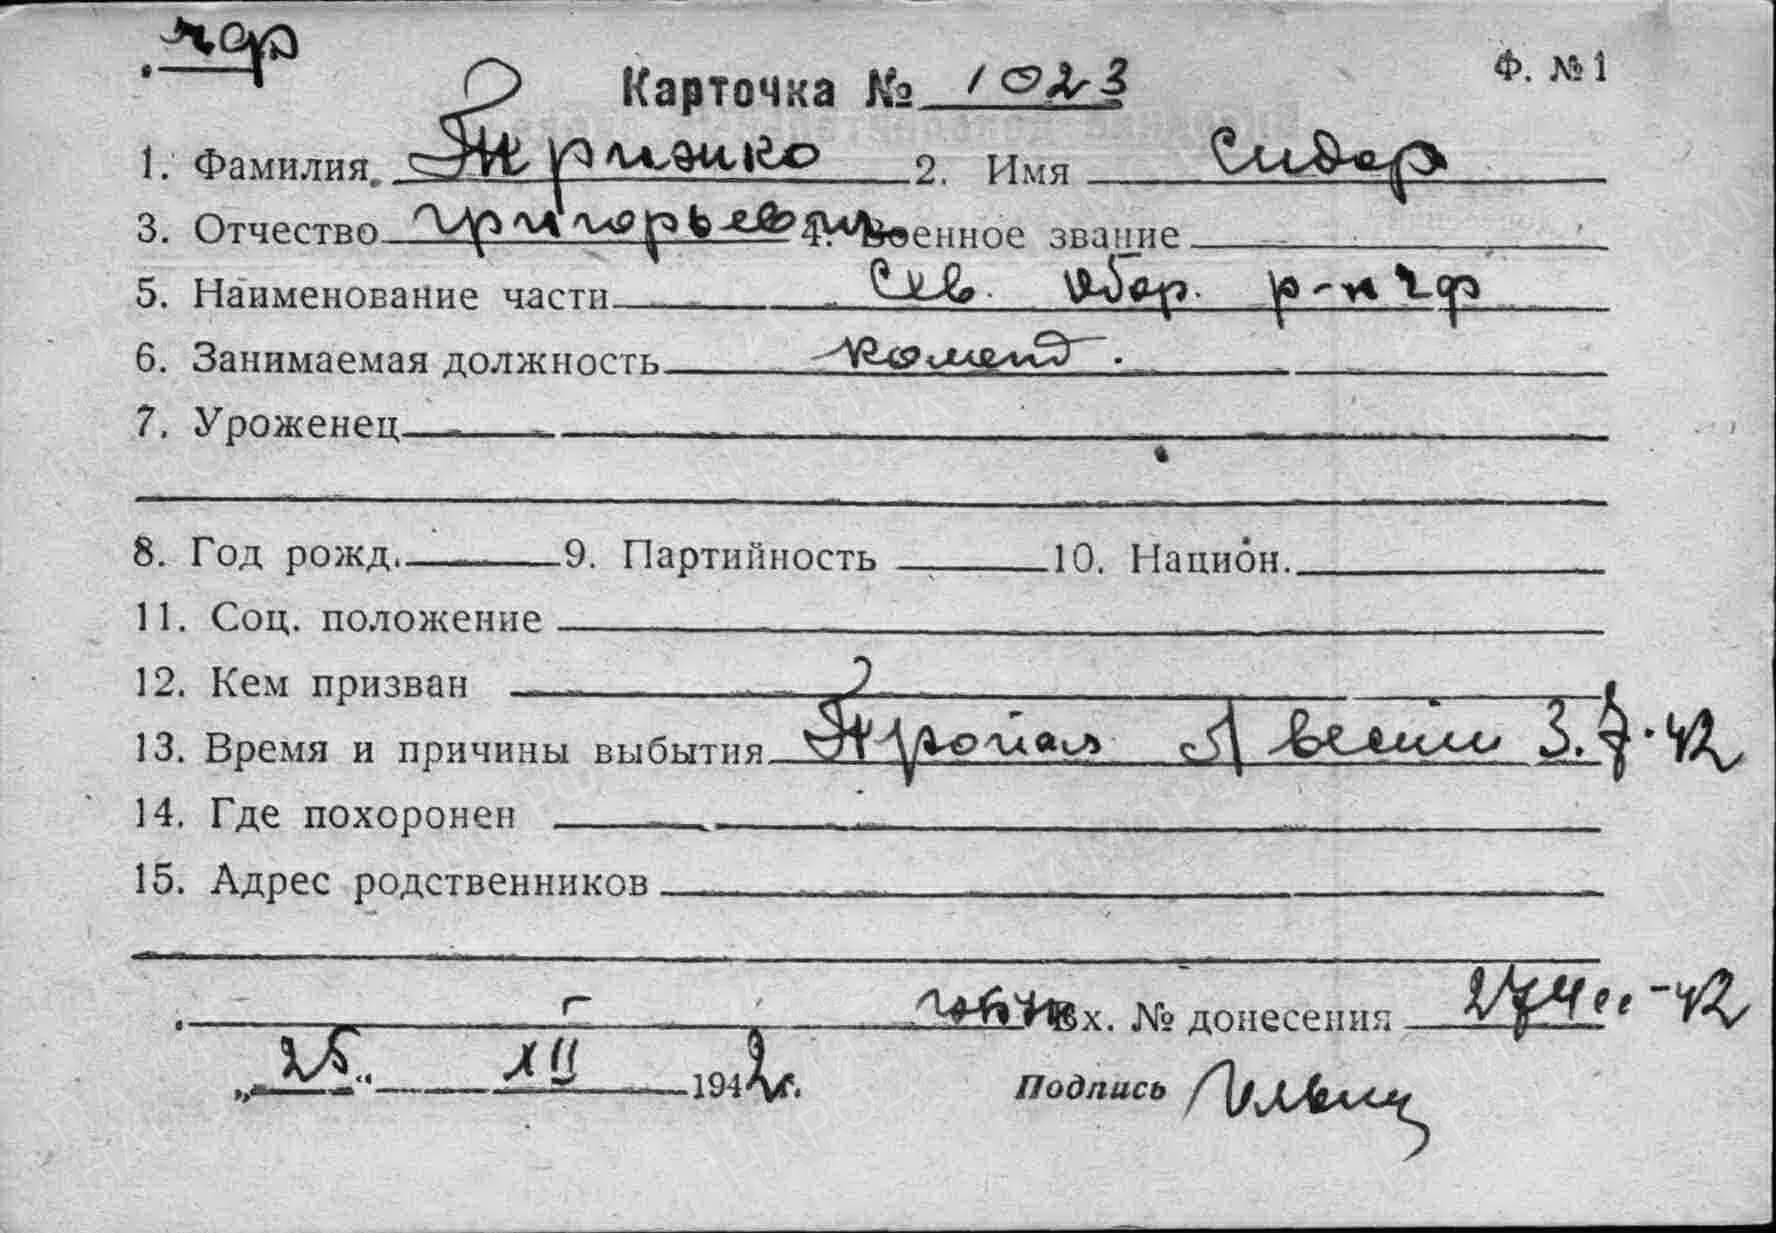 чф
Ф. №1
Карточка № 1023
1. Фамилия Призико 2. Имя Сидор
3. Отчество Григорьевич 4. Военное звание
5. Наименование части Сев. Обор. р-н ЧФ
6. Занимаемая должность коменд.
7. Уроженец
8. Год рожд. 9. Партийность 10. Национ.
11. Соц. положение
12. Кем призван
13. Время и причины выбытия Пропал б/вести 3.7.42
14. Где похоронен
15. Адрес родственников
Вх. № донесения
„25“ XII 1942г. Подпись